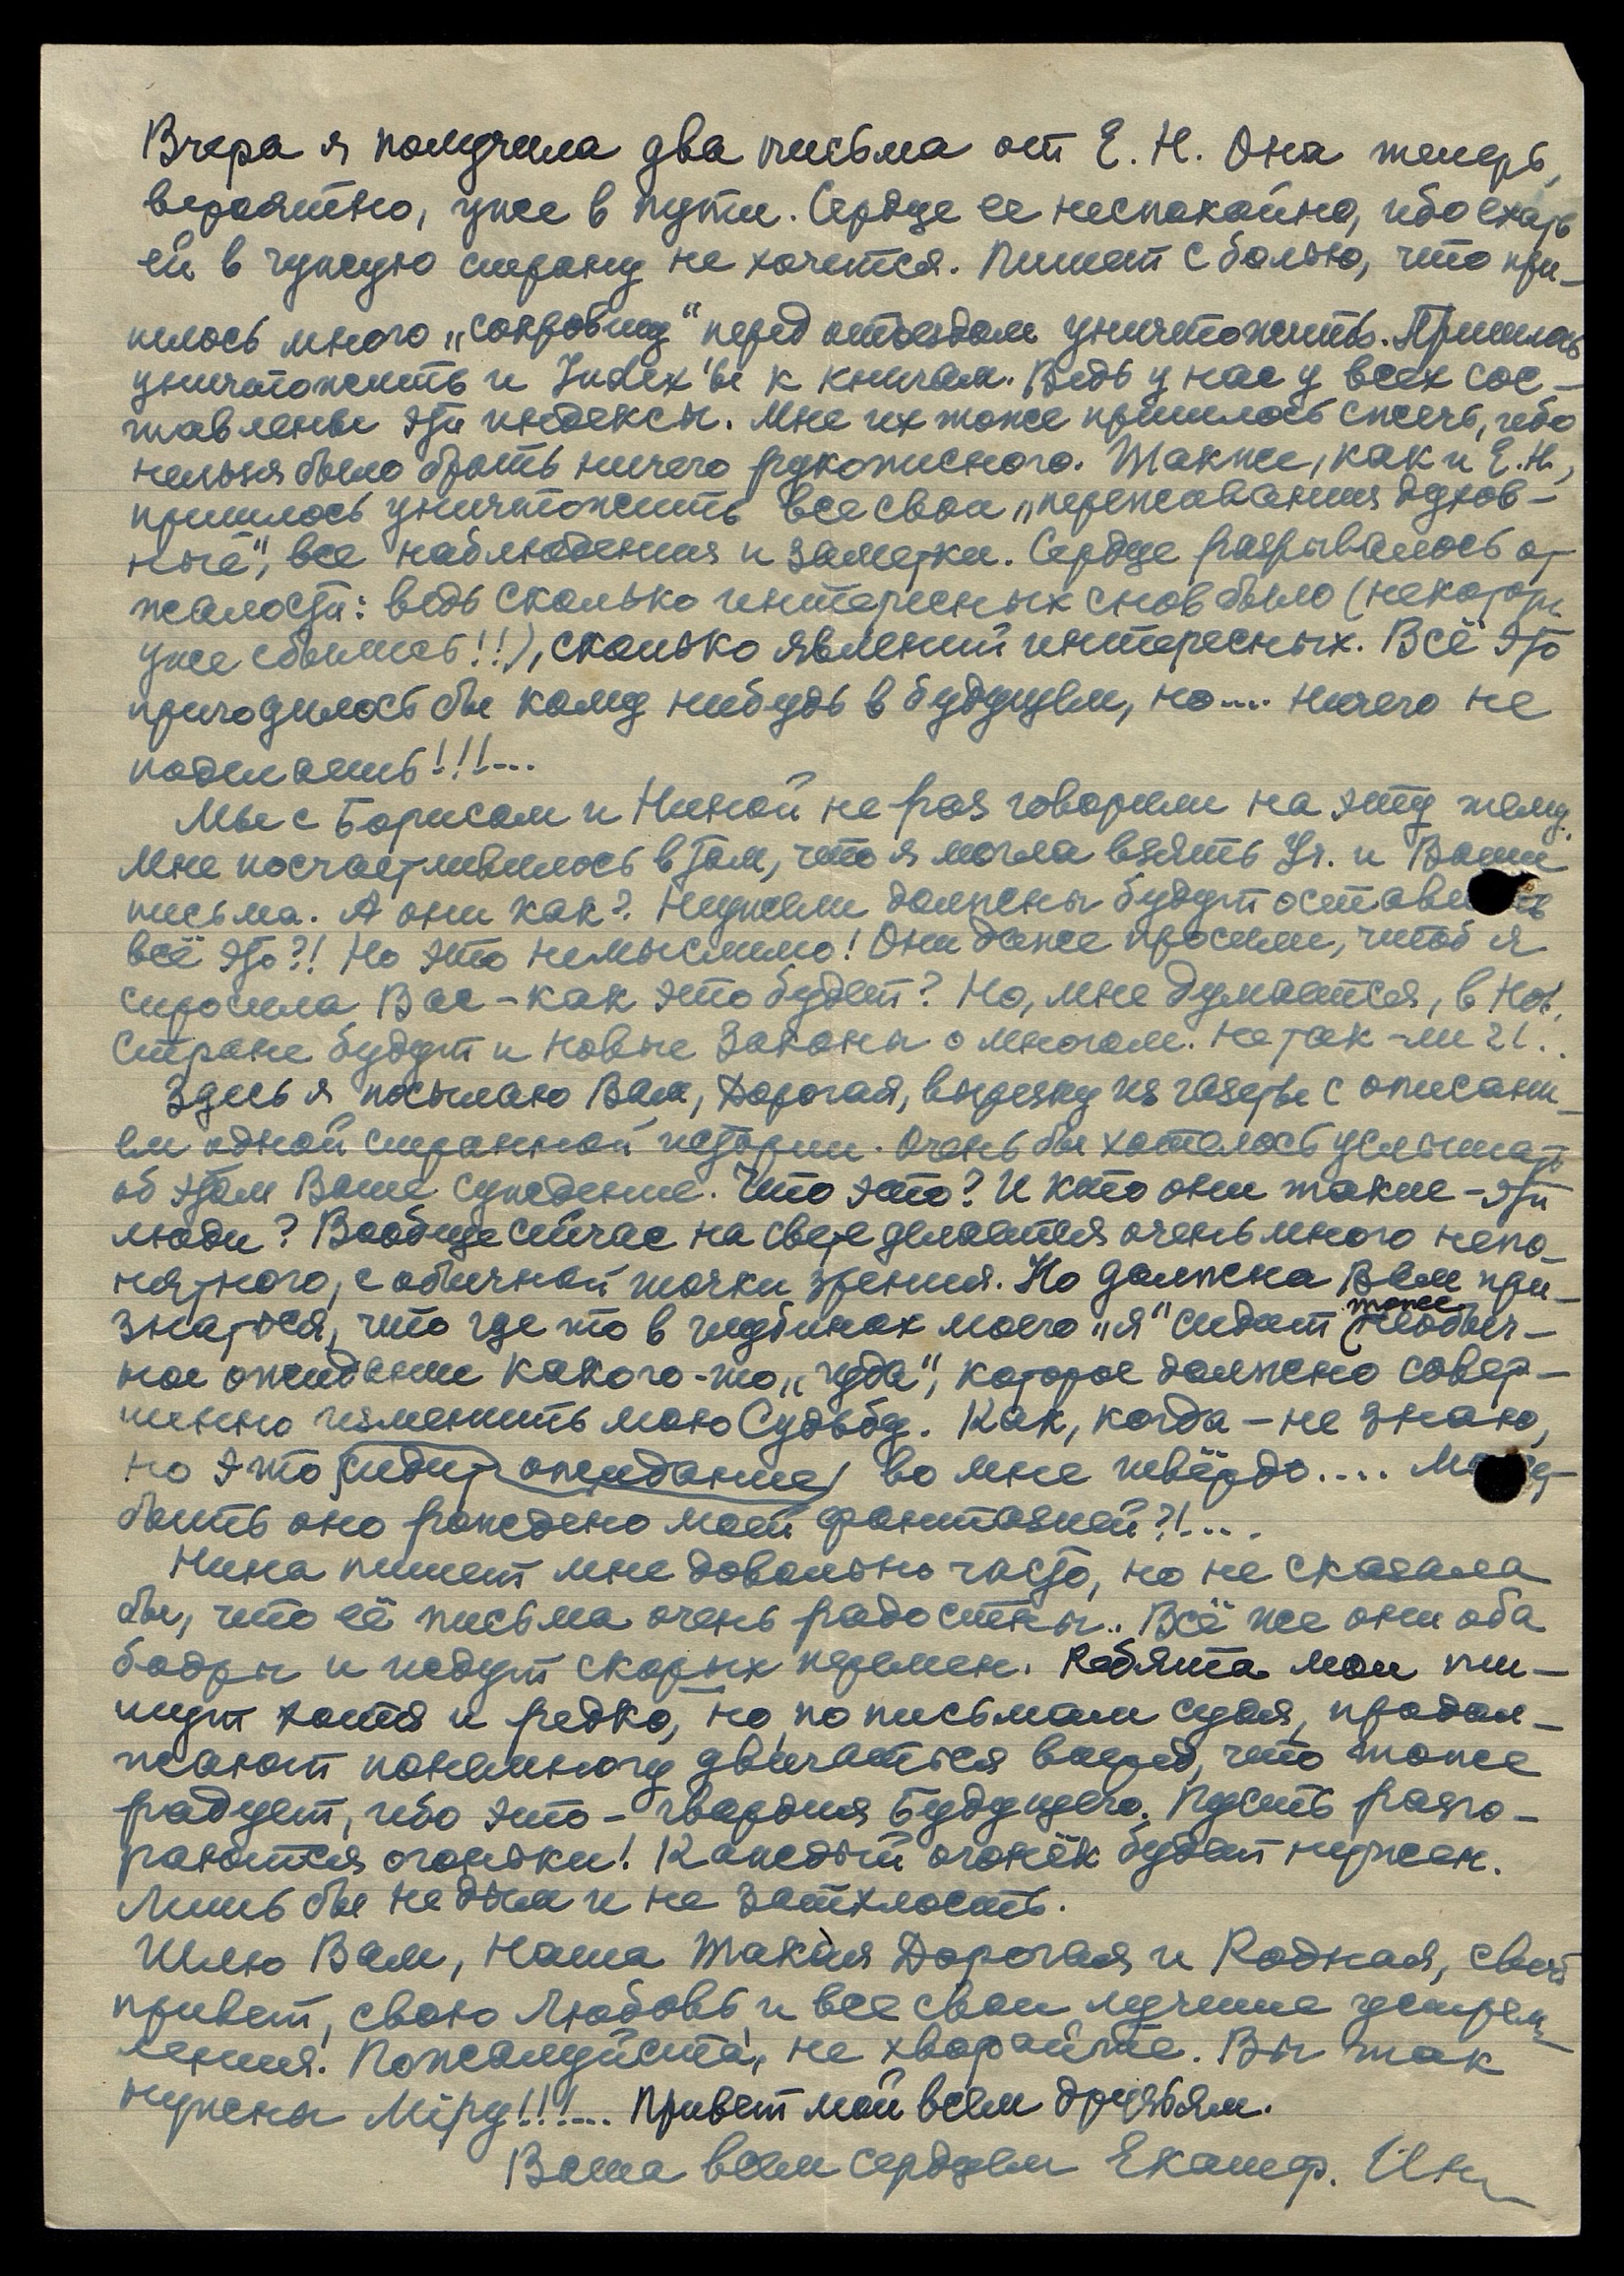 Вчера я получила два письма от Е. Н. Она теперь,
вероятно, уже в пути. Сердце ее неспокойно, ибо ехать
ей в чужую страну не хочется. Пишет с болью, что при-
шлось много „сокровищ" перед отъездом уничтожить. Пришлось
уничтожить и Index'ы к книгам. Ведь у нас у всех сос-
тавлены эти индексы. Мне их тоже пришлось сжечь, ибо
нельзя было брать ничего рукописного. Также, как и Е. Н.,
пришлось уничтожить все свои „переживания духов-
ные", все наблюдения и заметки. Сердце разрывалось от
жалости: ведь сколько интересных снов было (некоторые
уже сбылись!!), сколько явлений интересных. Всё это
пригодилось бы кому нибудь в будущем, но.... ничего не
поделаешь!!!...
Мы с Борисом и Ниной не раз говорили на эту тему.
Мне посчастливилось в том, что я могла взять Уч. и Ваши
письма. А они как? Неужели должны будут оставить
всё это?! Но это немыслимо! Они даже просили, чтоб я
спросила Вас – как это будет? Но, мне думается, в Нов.
Стране будут и новые Законы о многом. Не так-ли?!..
Здесь я посылаю Вам, Дорогая, вырезку из газеты с описани-
ем одной странной истории. Очень бы хотелось услышать
об этом Ваше суждение. Что это? И кто они такие – эти
люди? Вообще сейчас на свете делается очень много непо-
нятного, с обычной точки зрения. Но должна Вам при-
знаться, что где то в глубинах моего „я" сидит тоже необыч-
ное ожидание какого-то „чуда", которое должно совер-
шенно изменить мою Судьбу. Как, когда – не знаю,
но это сидит ожидание во мне твёрдо.... Может
быть оно рождено моей фантазией?!....
Нина пишет мне довольно часто, но не сказала
бы, что её письма очень радостны.. Всё же они оба
бодры и ждут скорых перемен. Ребята мои пи-
шут хотя и редко, но, по письмам судя, продол-
жают понемногу двигаться вперед, что тоже
радует, ибо это – гвардия Будущего. Пусть разго-
раются огоньки! Каждый огонёк будет нужен.
Лишь бы не дым и не затхлость.
Шлю Вам, Наша Такая Дорогая и Родная, свой
привет, свою Любовь и все свои лучшие устрем-
ления. Пожалуйста, не хворайте. Вы так
нужены Мiру!!!... Привет мой всем друзьям.
Ваша всем сердцем Екатер. Ин